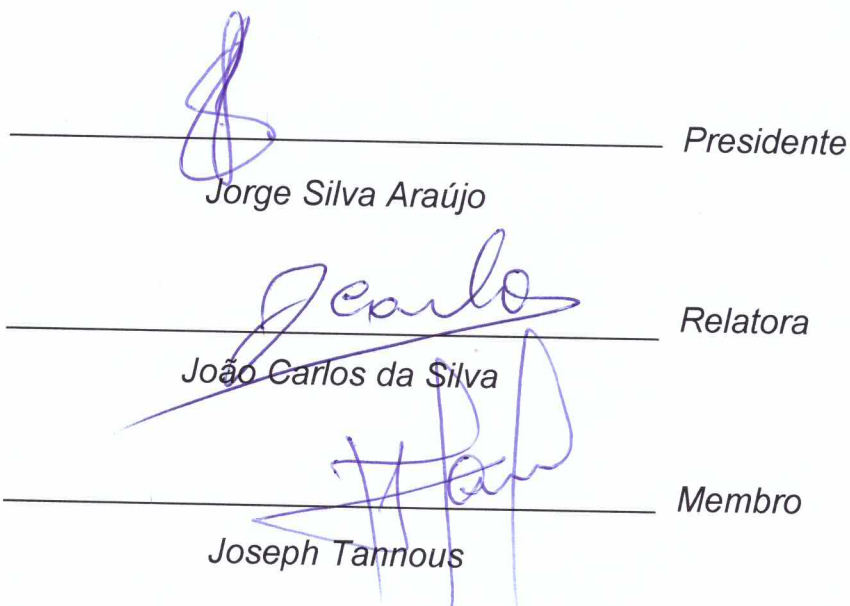 Presidente
Jorge Silva Araújo
Jcarlos
Relatora
João Carlos da Silva
Membro
Joseph Tannous